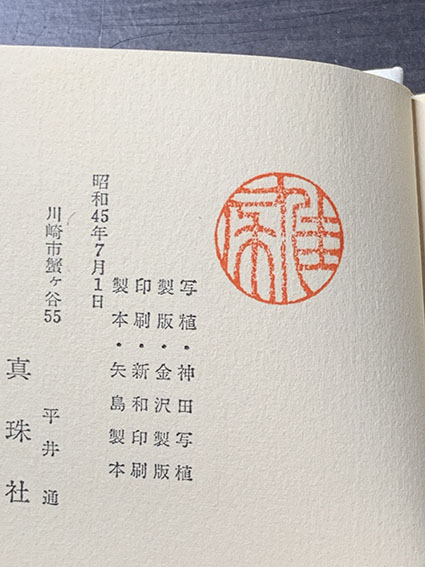 写植・神田写植
製版・金沢製版
印刷・新和印刷
製本・矢島製本
昭和45年7月1日
川崎市蟹ヶ谷55
平井 通
真珠社